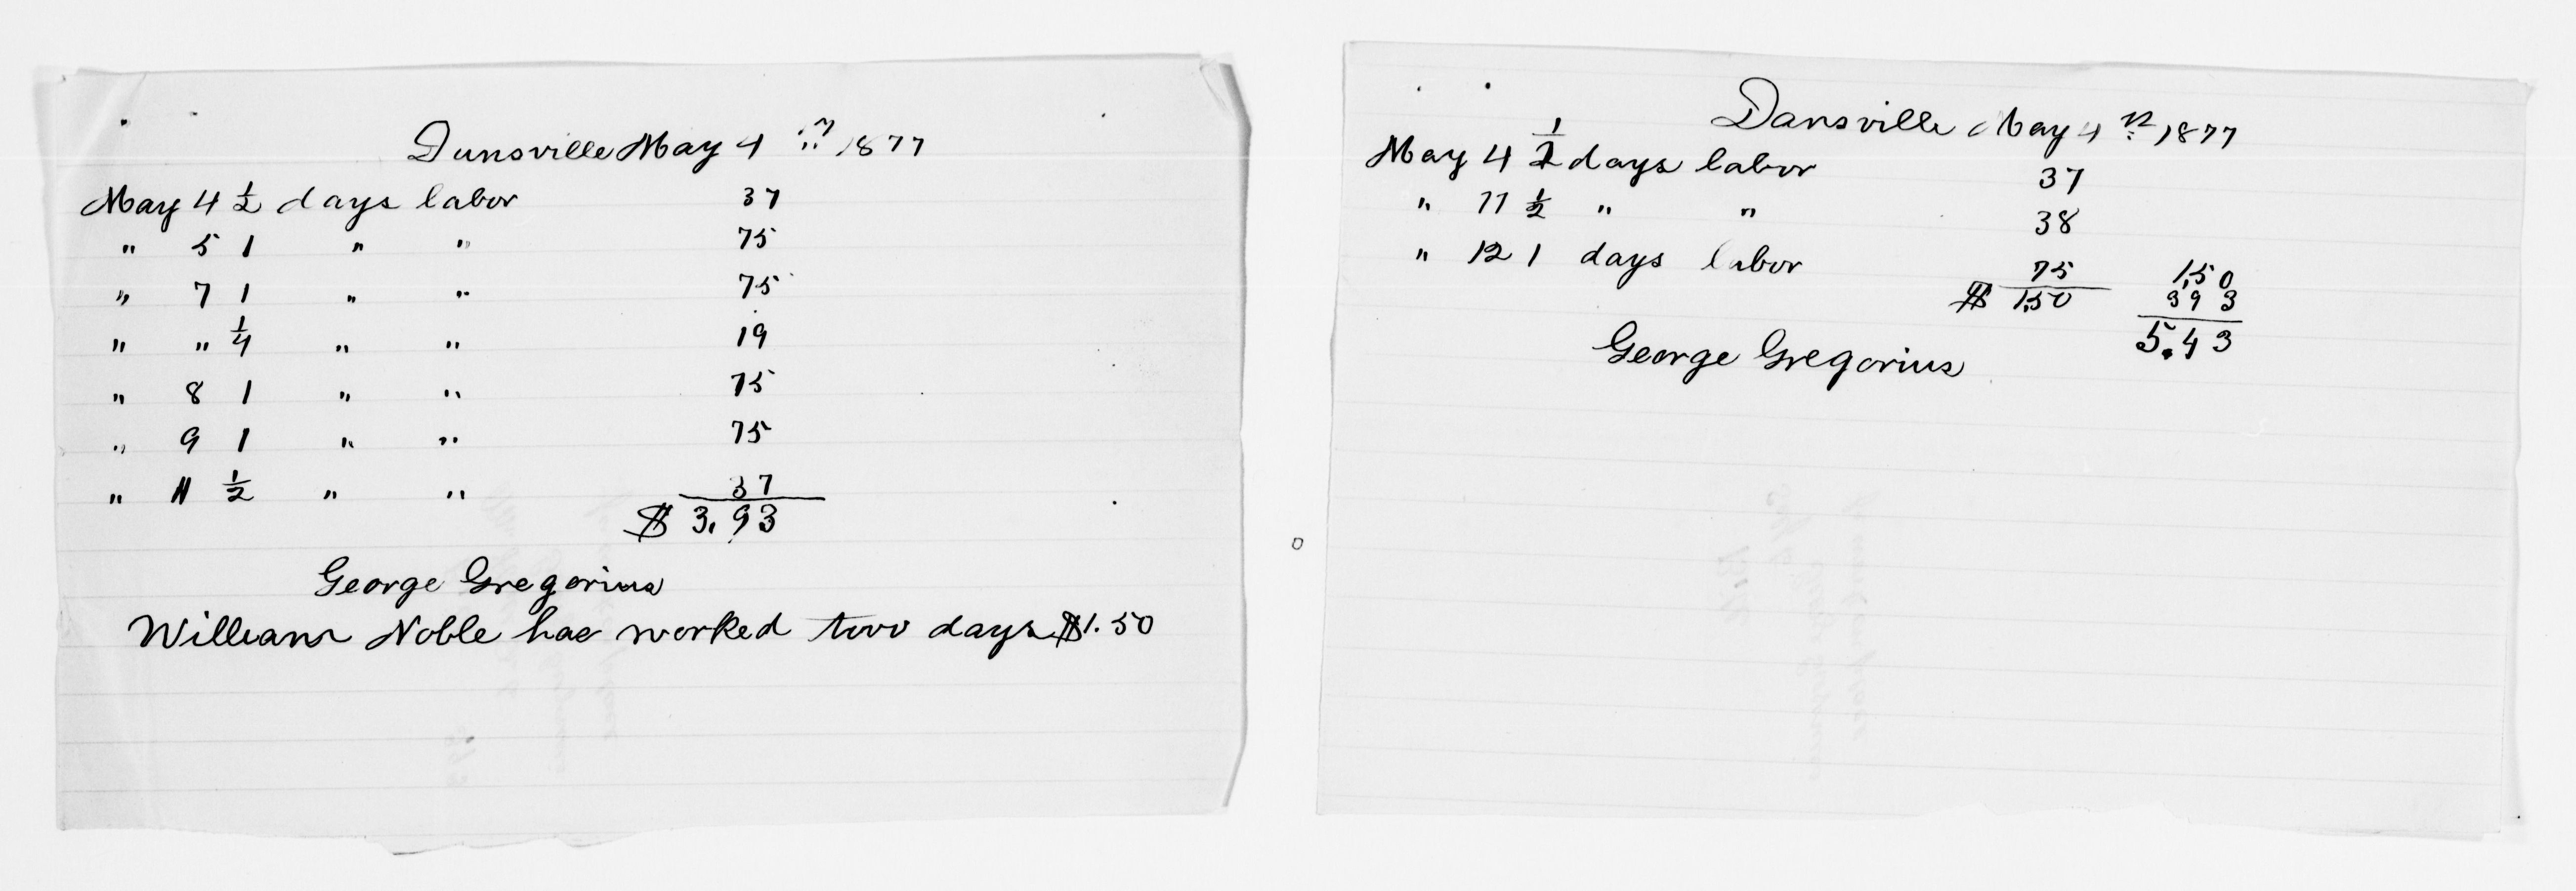 Dunsville May 4th 1877
May 4 ½ days labor 37
" 5 1 " " 75
" 7 1 " " 75
" " ¼ " " 19
" 8 1 " " 75
" 9 1 " " 75
" 11 ½ " " 37
$ 3.93
George Gregorius
William Noble has worked two days $1.50
Dansville May 4th 1877
May 4 ½ days labor 37
" 11 ½ " " 38
" 12 1 days labor 75
$ 1.50
1.50
393
5.43
George Gregorius